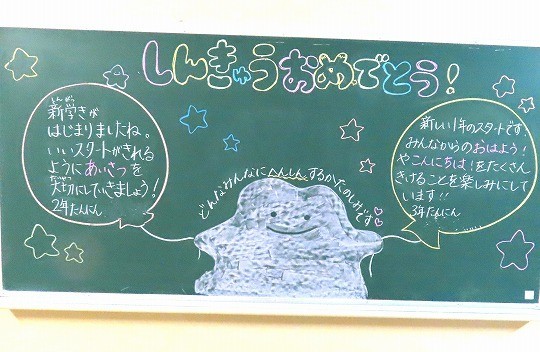 しんきゅうおめでとう！
しんがっき
新学きが
はじまりましたね。
いいスタートがきれる
ようにあいさつを
大切にしていきましょう！
2年たんにん
どんなみんなにへんしんするかたのしみです♡♡
新しい1年のスタートです
みんなからのおはよう！
やこんにちは！をたくさん
きけることを楽しみにして
います!!
3年たんにん